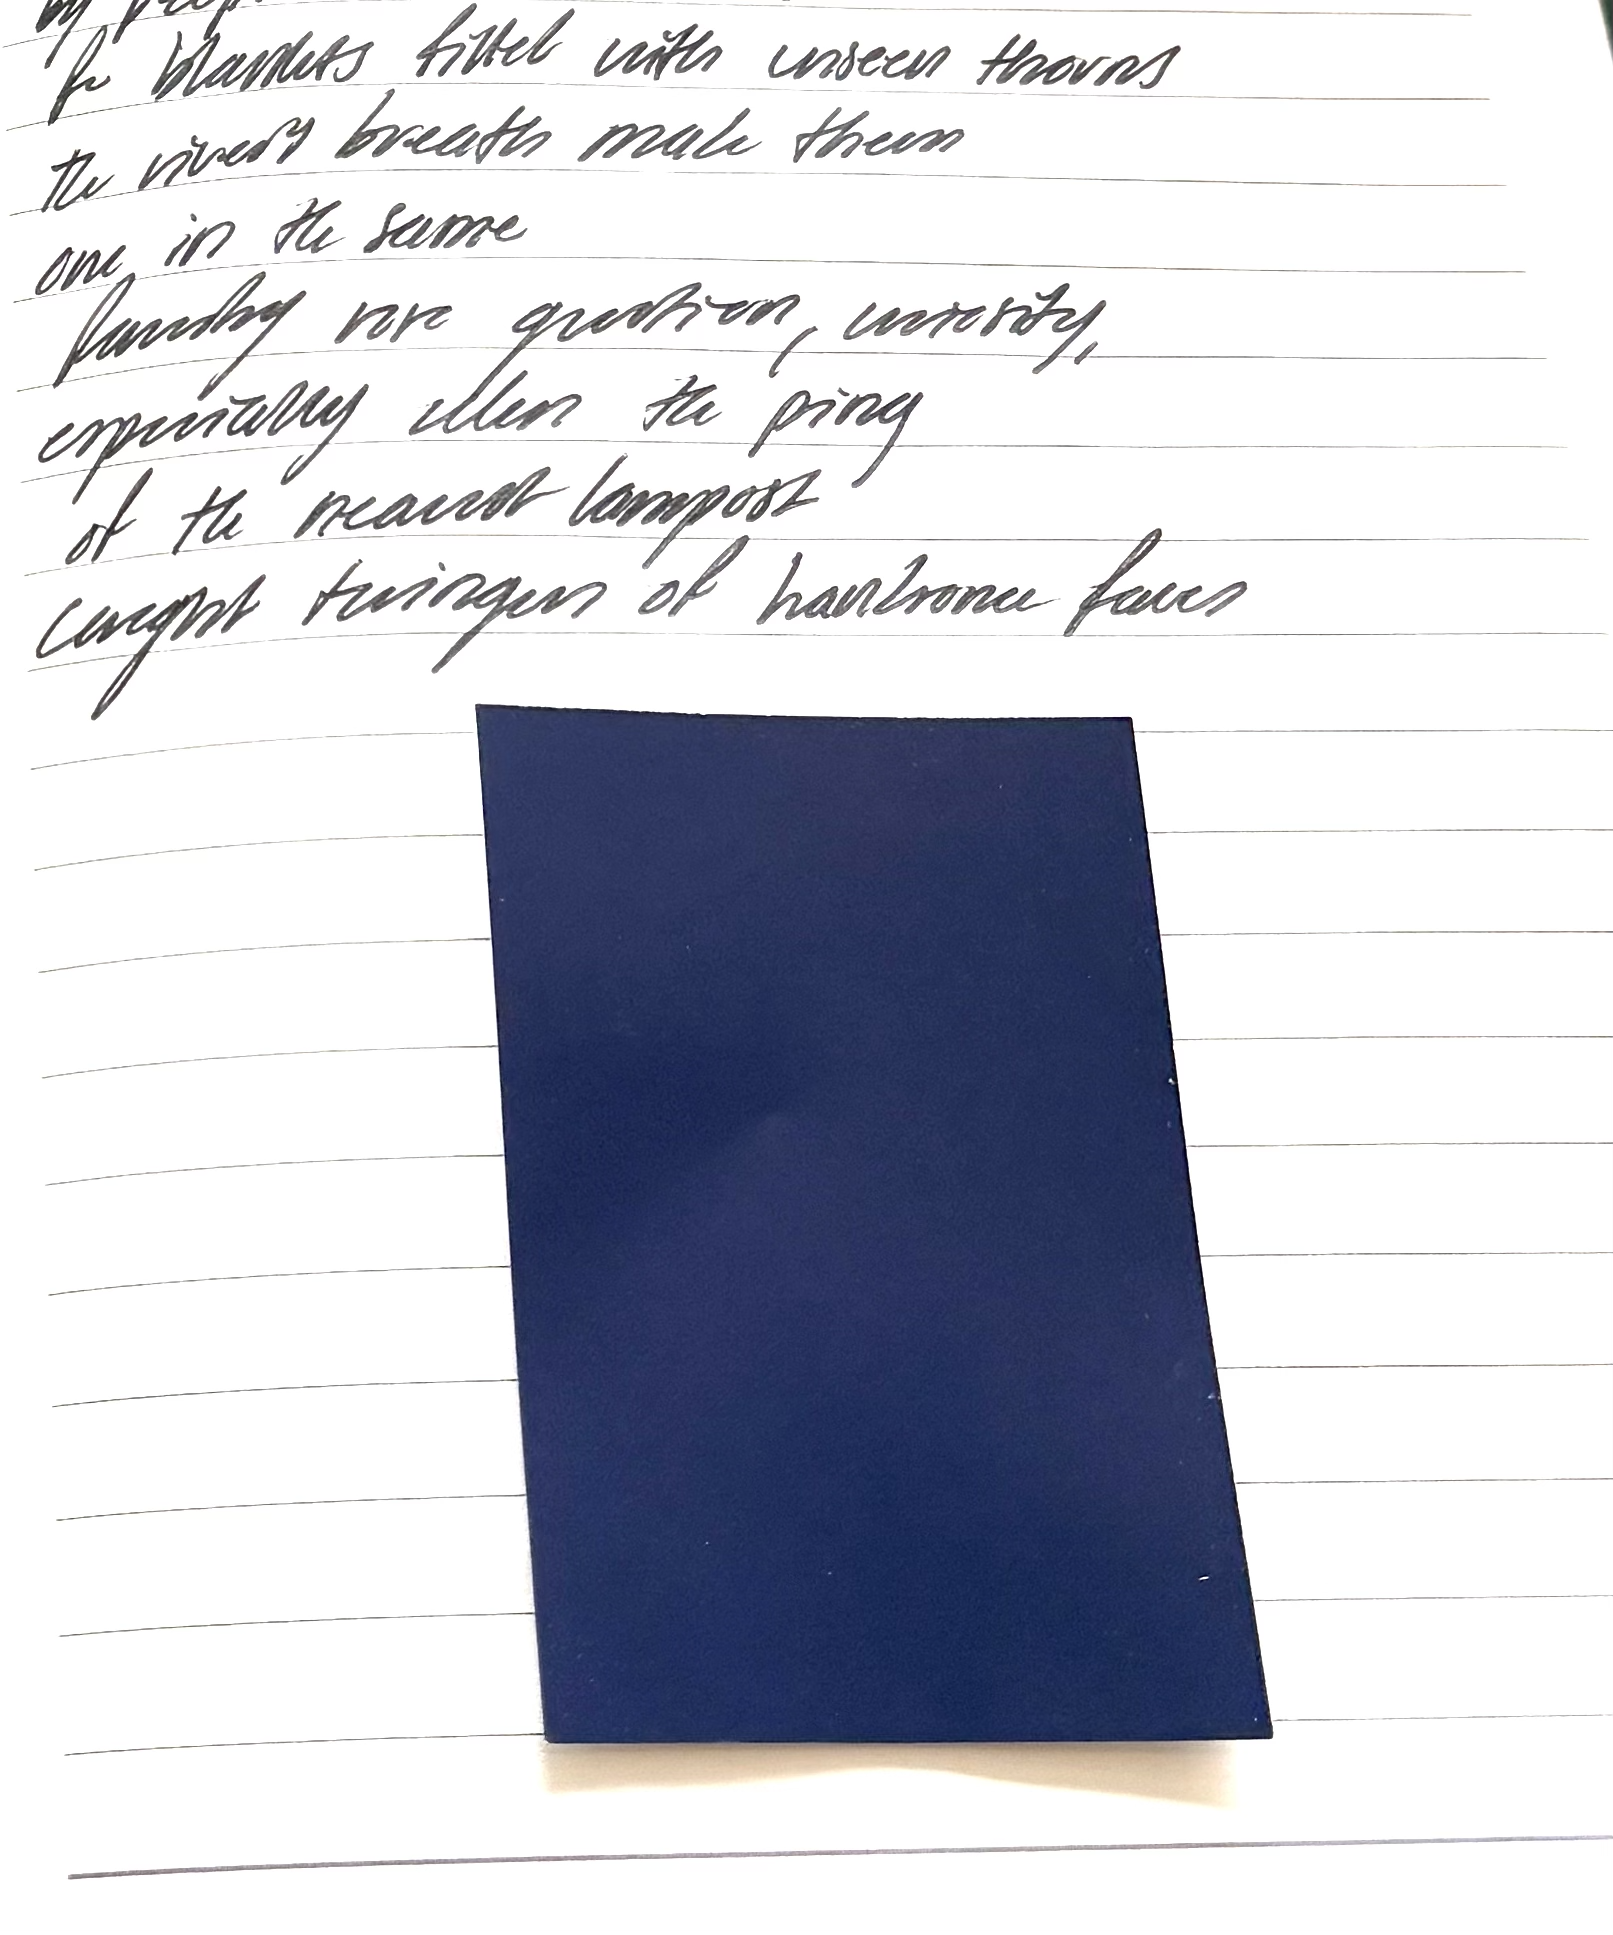 by
for blankets filled with unseen thorns
the rivers breath made them
one in the same
family was question, curiosity,
especially when the ping
of the nearest lampost
caught twinges of handsome faces